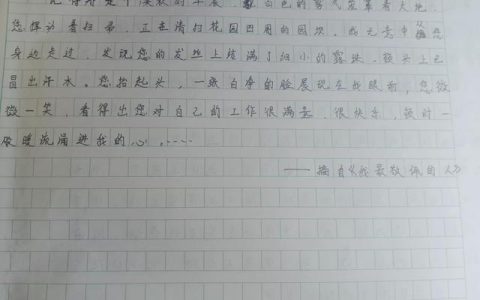 记得有是个深秋的早晨，白色的雾气笼罩着大地，
您挥动着扫帚，正在清扫花园四周的园坝。我无意中从您
身边走过，发现您的发丝上挂满了细小的露珠，额头上已
冒出汗水。您抬起头，一张白净的脸展现在我眼前，您微
微一笑，看得出您对自己的工作很满意、很快乐，顿时一
股暖流涌进我的心……
——摘自《我最敬佩的人》